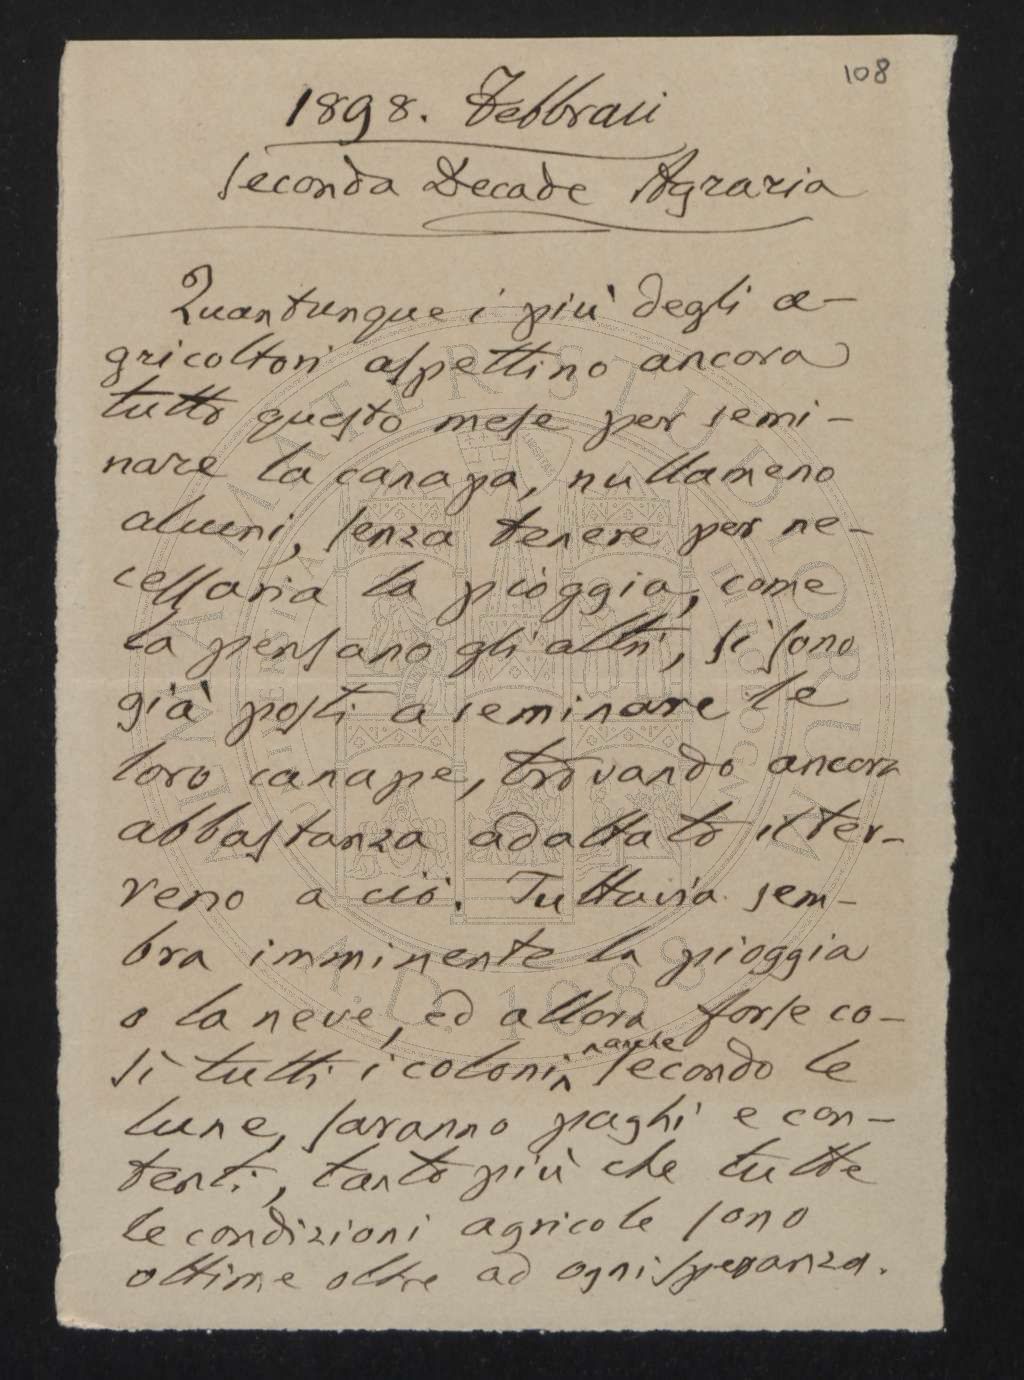 108
1898. Febbraii
Seconda Decade Agraria
Quantunque i più degli a-
gricoltori aspettino ancora
tutto questo mese per semi-
nare la canapa, nullameno
alcuni, senza tenere per ne-
cessaria la pioggia, come
la pensano gli altri, si sono
già posti a seminare le
loro canape, trovando ancora
abbastanza adattato il ter-
reno a ciò. Tuttavia sem-
bra imminente la pioggia
o la neve, ed allora forse co-
sì tutti i coloni nanche secondo le
lune, saranno paghi e con-
tenti, tanto più che tutte
le condizioni agricole sono
ottime oltre ad ogni speranza.
ALMA MATER STUDIORUM
A.D. 1088